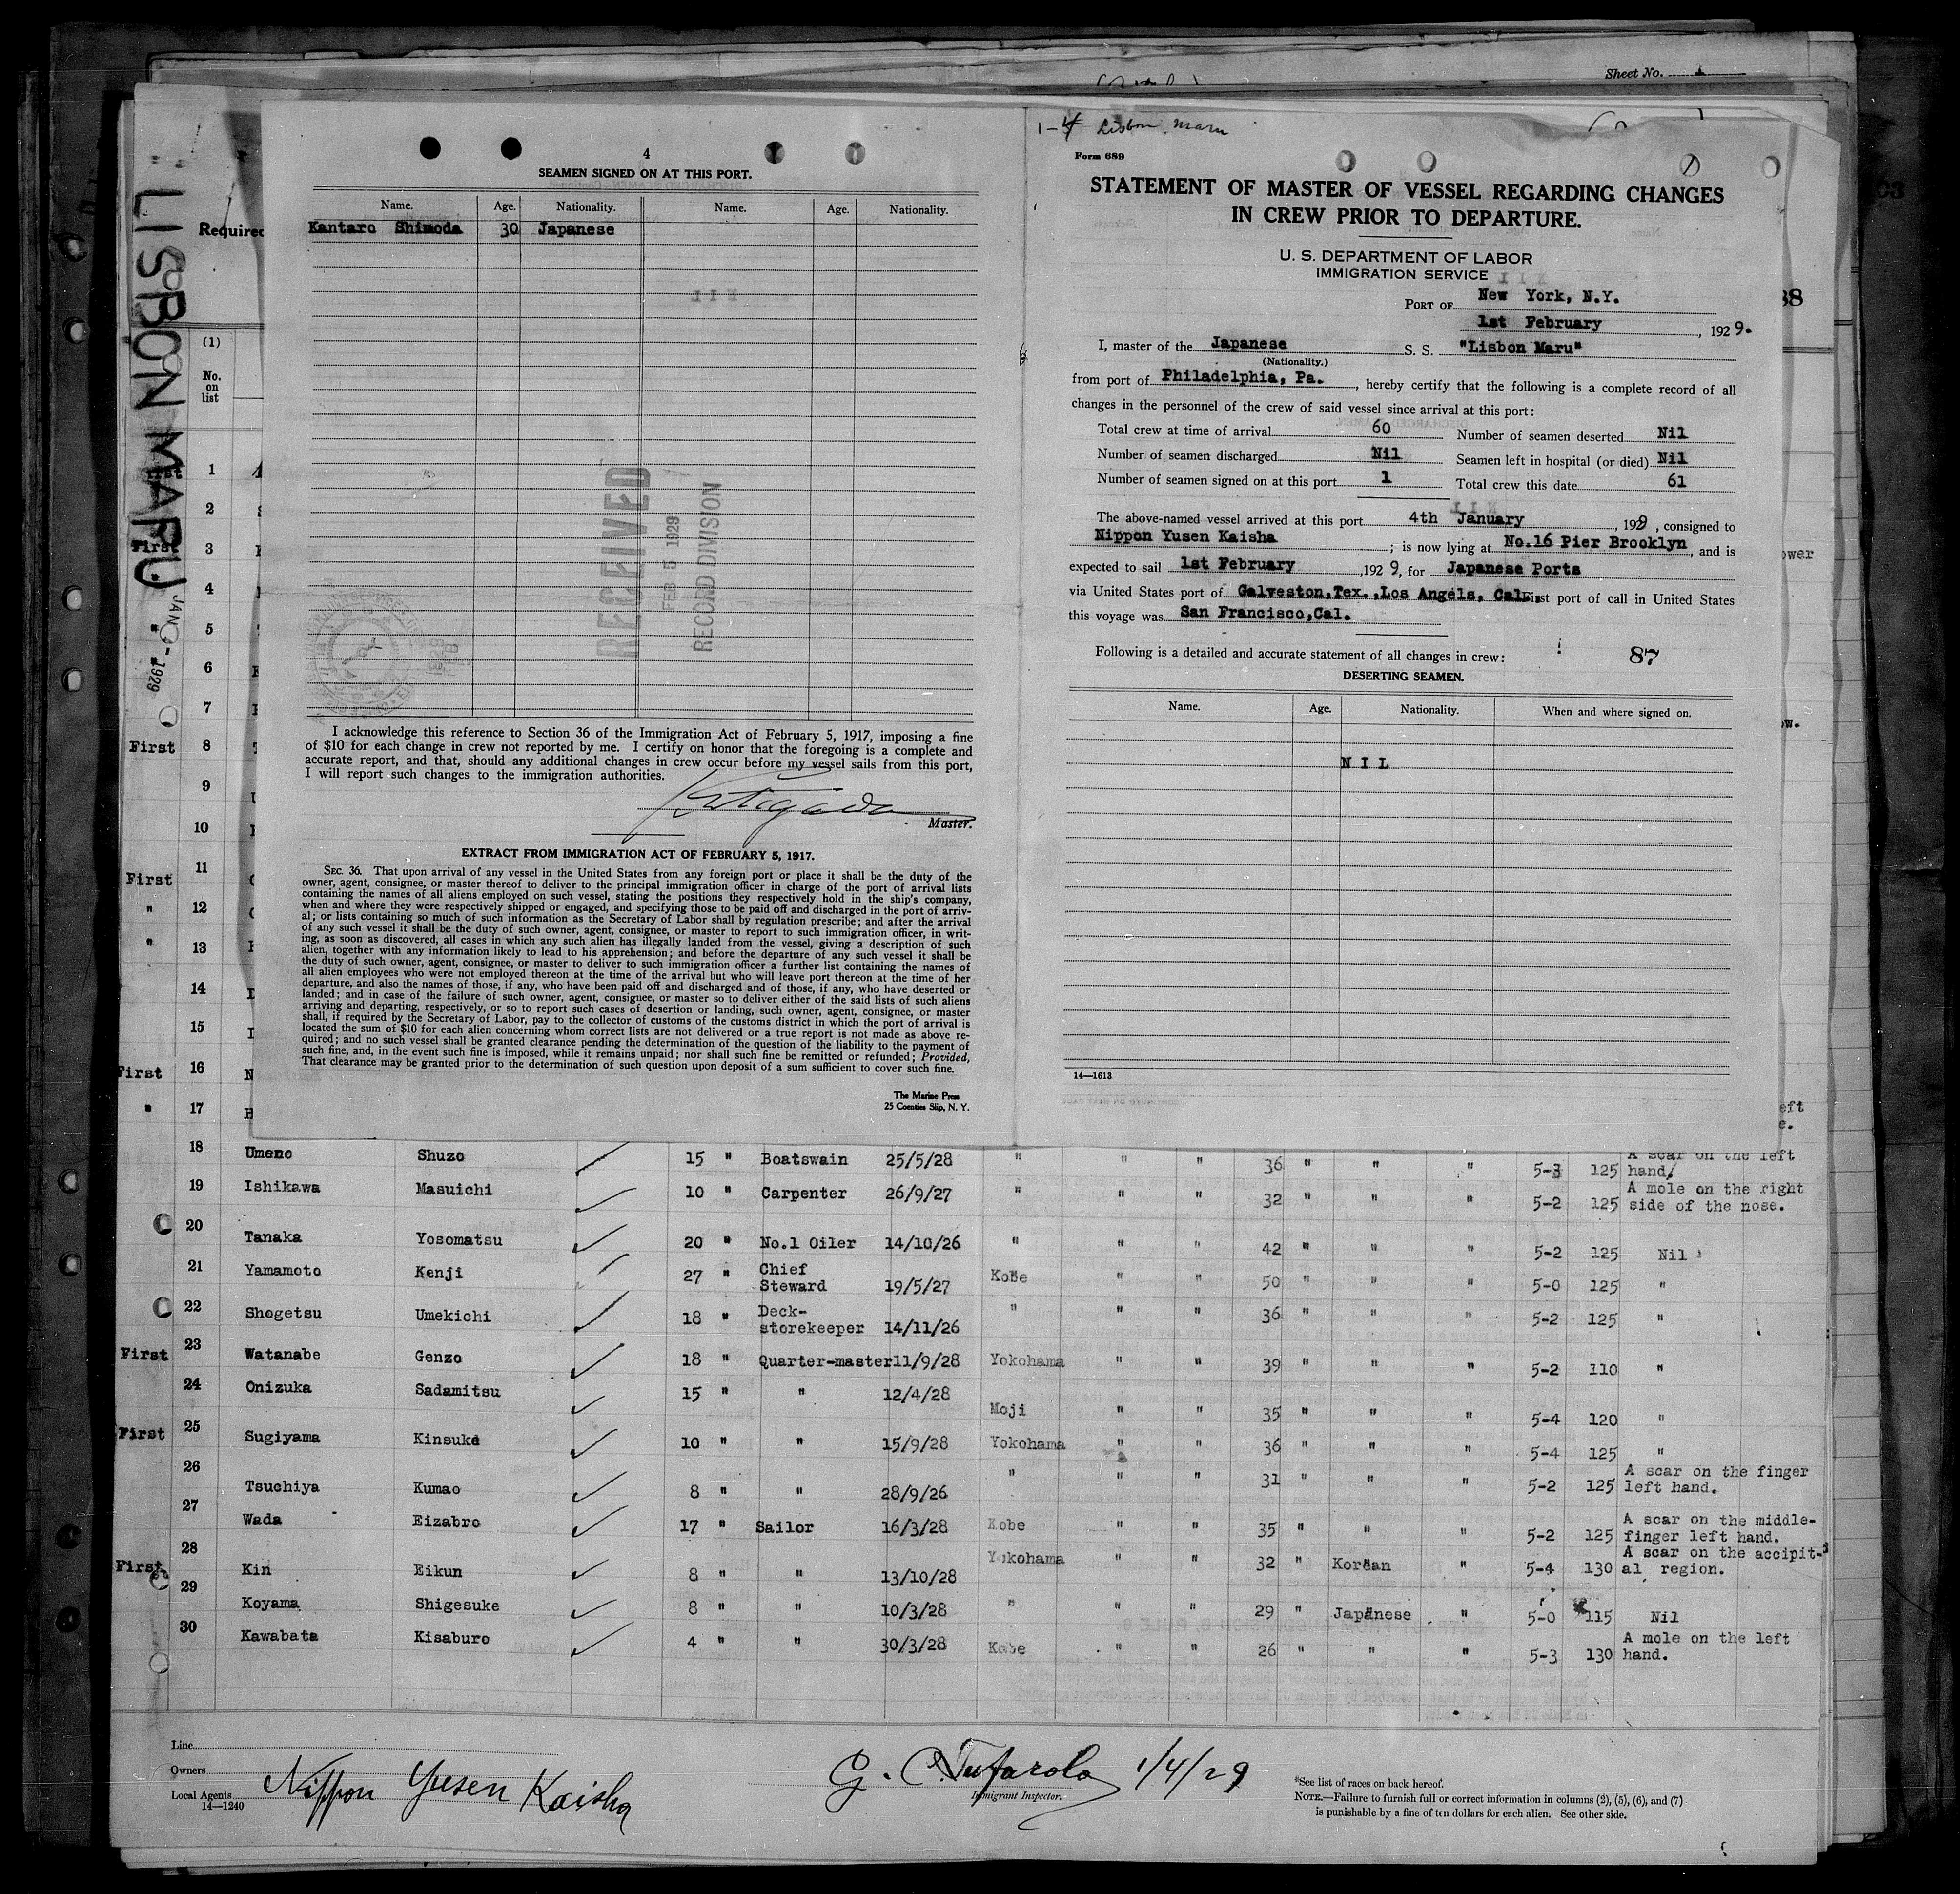 Sheet No.
LISBON MARU
JAN 4-1929
Required
(1)
No.
on
list
4
SEAMEN SIGNED ON AT THIS PORT.
Name. Age. Nationality. Name. Age. Nationality.
Kantaro Shimoda 30 Japanese
RECEIVED
FEB 5 1929
RECORD DIVISION
I acknowledge this reference to Section 36 of the Immigration Act of February 5, 1917, imposing a fine
of $10 for each change in crew not reported by me. I certify on honor that the foregoing is a complete and
accurate report, and that, should any additional changes in crew occur before my vessel sails from this port,
I will report such changes to the immigration authorities.
Master.
EXTRACT FROM IMMIGRATION ACT OF FEBRUARY 5, 1917.
SEC. 36. That upon arrival of any vessel in the United States from any foreign port or place it shall be the duty of the
owner, agent, consignee, or master thereof to deliver to the principal immigration officer in charge of the port of arrival lists
containing the names of all aliens employed on such vessel, stating the positions they respectively hold in the ship's company,
when and where they were respectively shipped or engaged, and specifying those to be paid off and discharged in the port of arriv-
al; or lists containing so much of such information as the Secretary of Labor shall by regulation prescribe; and after the arrival
of any such vessel it shall be the duty of such owner, agent, consignee, or master to report to such immigration officer, in writ-
ing, as soon as discovered, all cases in which any such alien has illegally landed from the vessel, giving a description of such
alien, together with any information likely to lead to his apprehension; and before the departure of any such vessel it shall be
the duty of such owner, agent, consignee, or master to deliver to such immigration officer a further list containing the names of
all alien employees who were not employed thereon at the time of the arrival but who will leave port thereon at the time of her
departure, and also the names of those, if any, who have been paid off and discharged and of those, if any, who have deserted or
landed; and in case of the failure of such owner, agent, consignee, or master so to deliver either of the said lists of such aliens
arriving and departing, respectively, or so to report such cases of desertion or landing, such owner, agent, consignee, or master
shall, if required by the Secretary of Labor, pay to the collector of customs of the customs district in which the port of arrival is
located the sum of $10 for each alien concerning whom correct lists are not delivered or a true report is not made as above re-
quired; and no such vessel shall be granted clearance pending the determination of the question of the liability to the payment of
such fine, and, in the event such fine is imposed, while it remains unpaid; nor shall such fine be remitted or refunded; Provided,
That clearance may be granted prior to the determination of such question upon deposit of a sum sufficient to cover such fine.
The Marine Press
25 Coenties Slip, N. Y.
1-4 Lisbon Maru
Form 689
STATEMENT OF MASTER OF VESSEL REGARDING CHANGES
IN CREW PRIOR TO DEPARTURE.
U. S. DEPARTMENT OF LABOR
IMMIGRATION SERVICE
PORT OF New York, N.Y.
1st February, 1929.
I, master of the Japanese S. S. "Lisbon Maru"
(Nationality.)
from port of Philadelphia, Pa., hereby certify that the following is a complete record of all
changes in the personnel of the crew of said vessel since arrival at this port:
Total crew at time of arrival 60 Number of seamen deserted Nil
Number of seamen discharged Nil Seamen left in hospital (or died) Nil
Number of seamen signed on at this port 1 Total crew this date 61
The above-named vessel arrived at this port 4th January, 1929, consigned to
Nippon Yusen Kaisha; is now lying at No.16 Pier Brooklyn, and is
expected to sail 1st February, 1929, for Japanese Ports
via United States port of Galveston,Tex.,Los Angels, Cal. First port of call in United States
this voyage was San Francisco,Cal.
Following is a detailed and accurate statement of all changes in crew: 87
DESERTING SEAMEN.
Name. Age. Nationality. When and where signed on.
NIL
14—1613
First 1
2
First 3
4
" 5
6
7
First 8
9
10
First 11
" 12
" 13
14
15
First 16
" 17
18 Umeno Shuzo 15 " Boatswain 25/5/28 " " " 36 " " " 5-3 125 A scar on the left hand.
19 Ishikawa Masuichi 10 " Carpenter 26/9/27 " " " 32 " " " 5-2 125 A mole on the right side of the nose.
20 Tanaka Yosomatsu 20 " No.1 Oiler 14/10/26 " " " 42 " " " 5-2 125 Nil
21 Yamamoto Kenji 27 " Chief Steward 19/5/27 Kobe " " 50 " " " 5-0 125 "
22 Shogetsu Umekichi 18 " Deck-storekeeper 14/11/26 " " " 36 " " " 5-2 125 "
First 23 Watanabe Genzo 18 " Quarter-master 11/9/28 Yokohama " " 39 " " " 5-2 110 "
24 Onizuka Sadamitsu 15 " " 12/4/28 Moji " " 35 " " " 5-4 120 "
First 25 Sugiyama Kinsuke 10 " " 15/9/28 Yokohama " " 36 " " " 5-4 125 "
26 Tsuchiya Kumao 8 " " 28/9/26 " " " 31 " " " 5-2 125 A scar on the finger left hand.
27 Wada Eizabro 17 " Sailor 16/3/28 Kobe " " 35 " " " 5-2 125 A scar on the middle-finger left hand.
First 28 Kin Eikun 8 " " 13/10/28 Yokohama " " 32 " Korean " 5-4 130 A scar on the accipit-al region.
29 Koyama Shigesuke 8 " " 10/3/28 " " " 29 " Japanese " 5-0 115 Nil
30 Kawabata Kisaburo 4 " " 30/3/28 Kobe " " 26 " " " 5-3 130 A mole on the left hand.
Line
Owners
Local Agents Nippon Yusen Kaisha
14—1240
G. C. Tufarolo 1/4/29
Immigrant Inspector.
*See list of races on back hereof.
NOTE.—Failure to furnish full or correct information in columns (2), (5), (6), and (7)
is punishable by a fine of ten dollars for each alien. See other side.